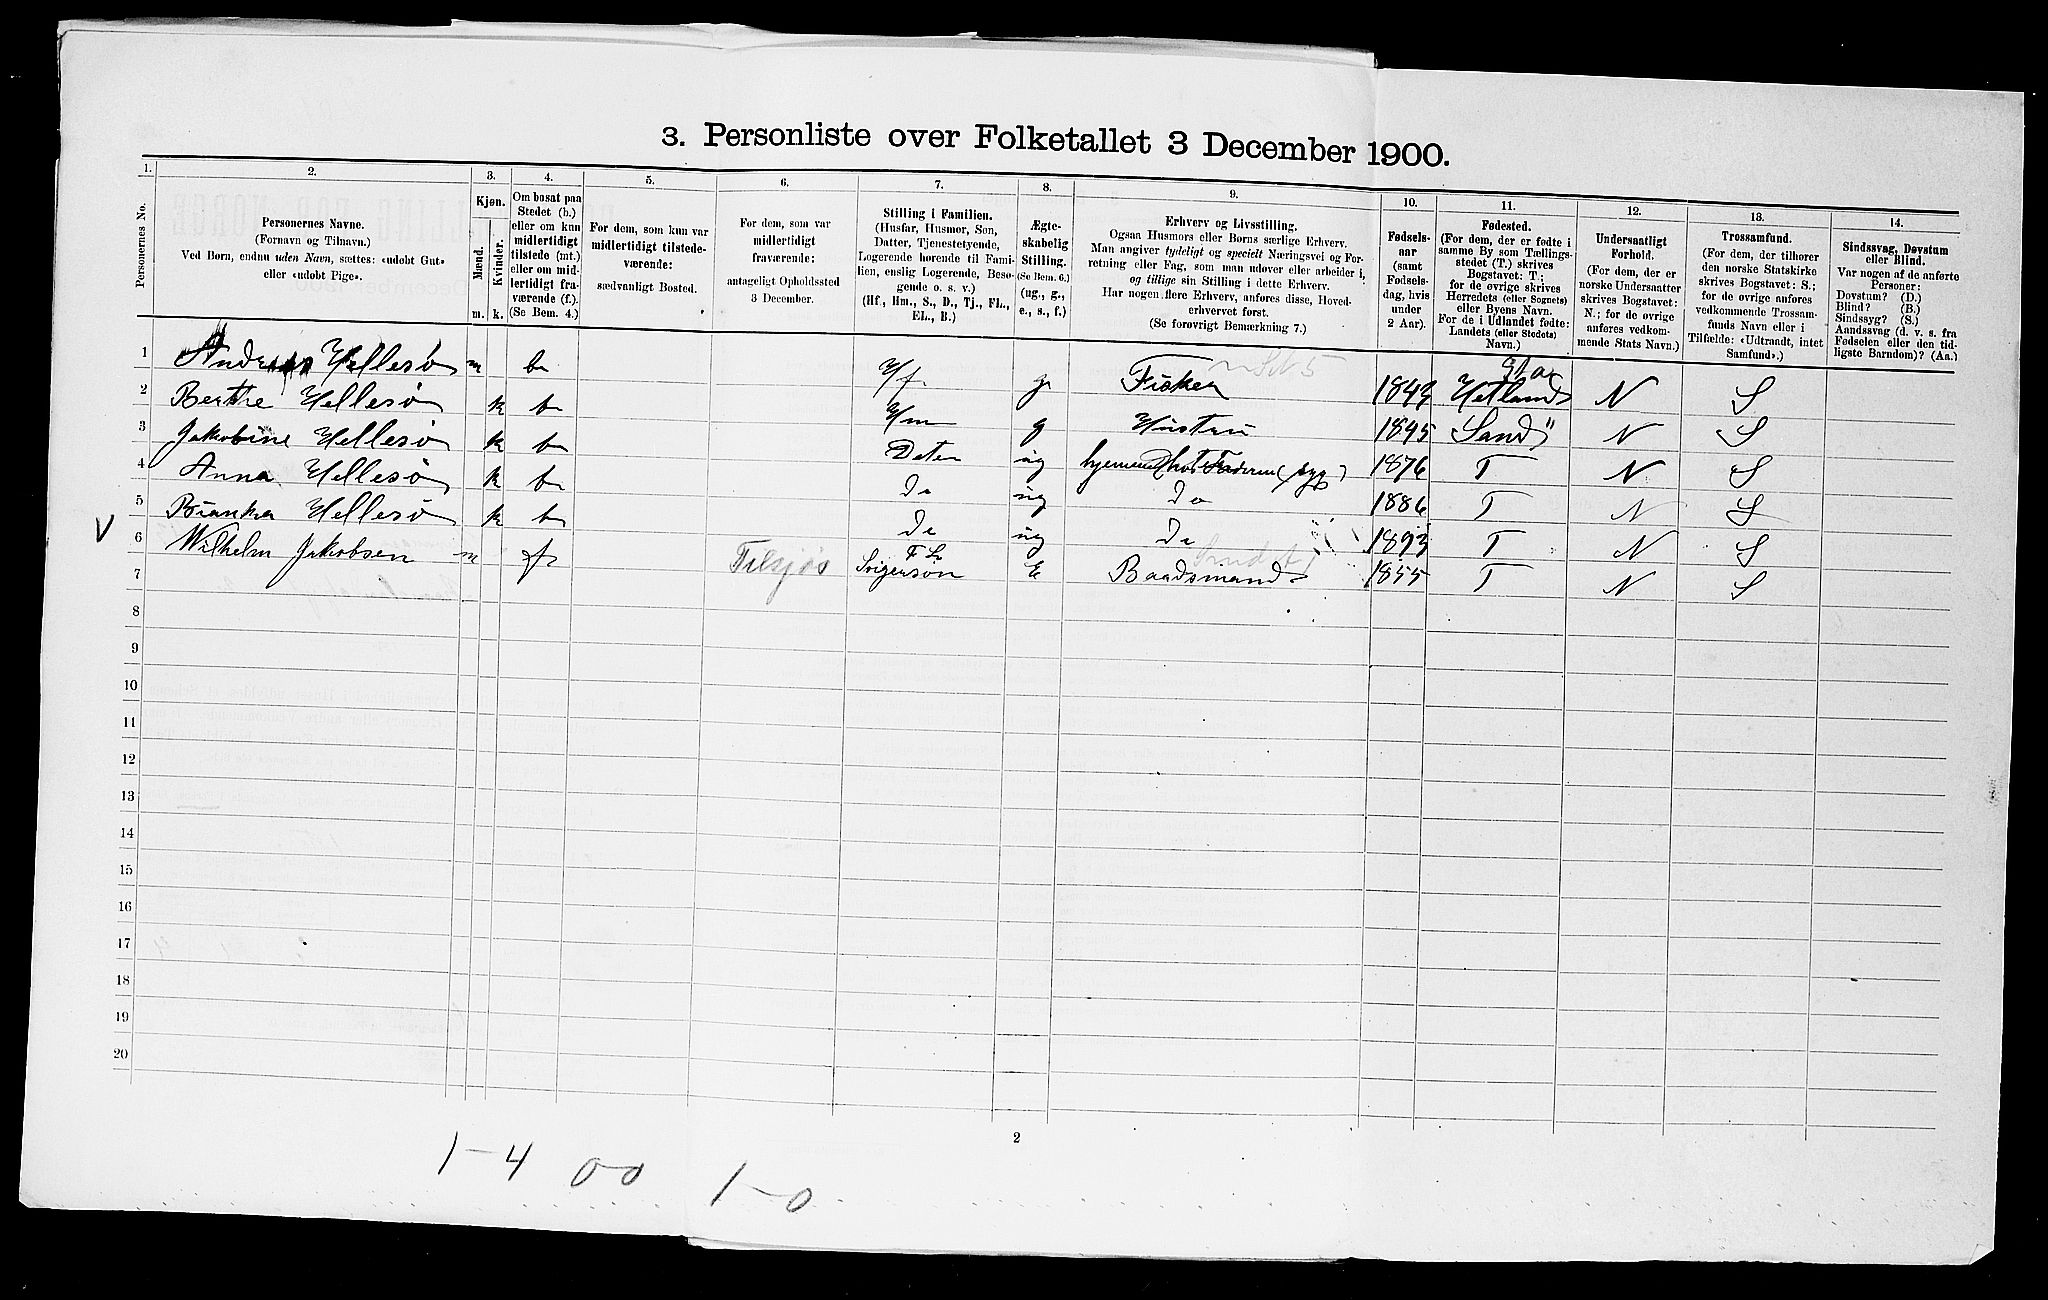 3. Personliste over Folketallet 3 December 1900.
1. 2. 3. 4. 5. 6. 7. 8. 9. 10. 11. 12. 13. 14.
Personernes No.
Personernes Navne.
(Fornavn og Tilnavn.)
Ved Børn, endnu uden Navn, sættes: «udøbt Gut»
eller «udøbt Pige».
Kjøn.
Mænd.
Kvinder.
m. k.
Om bosat paa
Stedet (b.)
eller om kun
midlertidigt
tilstede (mt.)
eller om mid-
lertidigt fra-
værende (f.).
(Se Bem. 4.)
For dem, som kun var
midlertidigt tilstede-
værende:
sædvanligt Bosted.
For dem, som var
midlertidigt
fraværende:
antageligt Opholdssted
3 December.
Stilling i Familien.
(Husfar, Husmor, Søn,
Datter, Tjenestetyende,
Logerende hørende til Fami-
lien, enslig Logerende, Besø-
gende o. s. v.)
(Hf., Hm., S., D., Tj., FL.,
EL., B.)
Ægte-
skabelig
Stilling.
(Se Bem. 6.)
(ug., g.,
e., s., f.)
Erhverv og Livsstilling.
Ogsaa Husmors eller Børns særlige Erhverv.
Man angiver tydeligt og specielt Næringsvei og For-
retning eller Fag, som man udøver eller arbeider i,
og tillige sin Stilling i dette Erhverv.
Har nogen flere Erhverv, anføres disse, Hoved-
erhvervet først.
(Se forøvrigt Bemærkning 7.)
Fødsels-
aar
(samt
Fødsels-
dag, hvis
under
2 Aar).
Fødested.
(For dem, der er fødte i
samme By som Tællings-
stedet (T.) skrives
Bogstavet: T.;
for de øvrige skrives
Herredets (eller Sognets)
eller Byens Navn.
For de i Udlandet fødte:
Landets (eller Stedets)
Navn.)
Undersaatligt
Forhold.
(For dem, der er
norske Undersaatter
skrives Bogstavet:
N.; for de øvrige
anføres vedkom-
mende Stats Navn.)
Trossamfund.
(For dem, der tilhører
den norske Statskirke
skrives Bogstavet: S.;
for de øvrige anføres
vedkommende Trossam-
funds Navn eller i
Tilfælde: «Udtraadt, intet
Samfund».)
Sindssvag, Døvstum
eller Blind.
Var nogen af de anførte
Personer:
Døvstum? (D.)
Blind? (B.)
Sindssyg? (S.)
Aandssvag (d. v. s. fra
Fødselen eller den tid-
ligste Barndom)? (Aa.)
1 Andreas Hellesø m b Hf g Fisker 1849 Hetland N S
2 Berthe Hellesø k b Hm g Hustru 1845 Sand N S
3 Jakobine Hellesø k b Dater ug hjemme hos Faderen (syg) 1876 T N S
4 Anna Hellesø k b do ug do 1886 T N S
V 5 Bianka Hellesø k b do ug do 1893 T N S
6 Wilhelm Jakobsen m f Tilsjøs FL Svigersøn E Baadsmand 1855 T N S
7
8
9
10
11
12
13
14
15
16
17
18
19
20
2
1-4 0-0 1-0